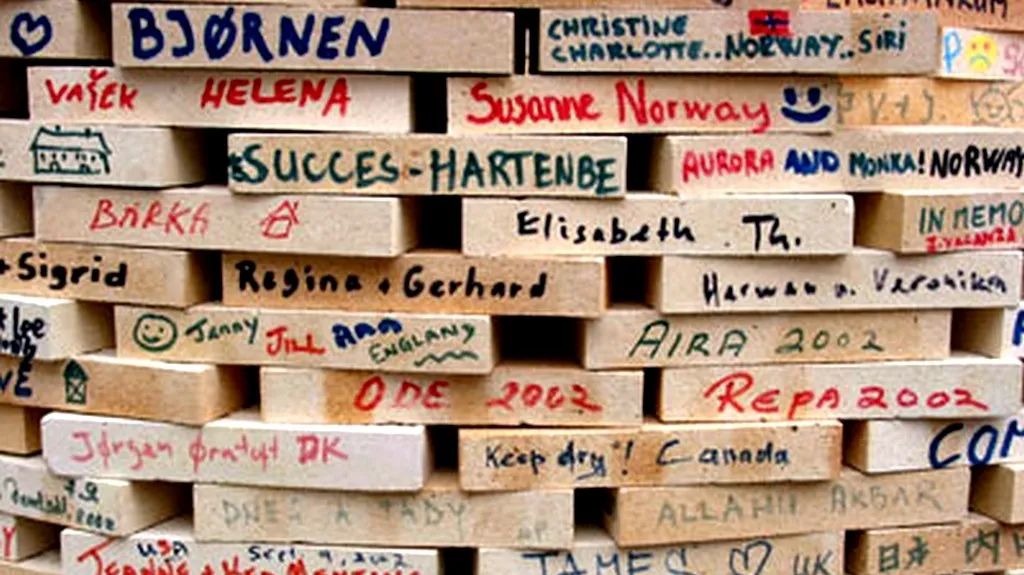 BJØRNEN
CHRISTINE
CHARLOTTE..NORWAY..SIRI
P
VAŠEK HELENA
Susanne Norway
V.+J.
SUCCES-HARTENBE
AURORA AND MONKA! NORWAY
BÁRKA
Elisabeth Th.
IN MEMO
J.VALANZA
+Sigrid
Regina + Gerhard
Herman u. Veronika
Jenny JILL ANN
ENGLAND
AIRA 2002
ODE 2002
REPA 2002
Jørgen DK
Keep dry! Canada
COM
DNES A TADY
ALLAHU AKBAR
USA Sept. 9, 2002
JEANNE + KEN
JAMES UK
日本